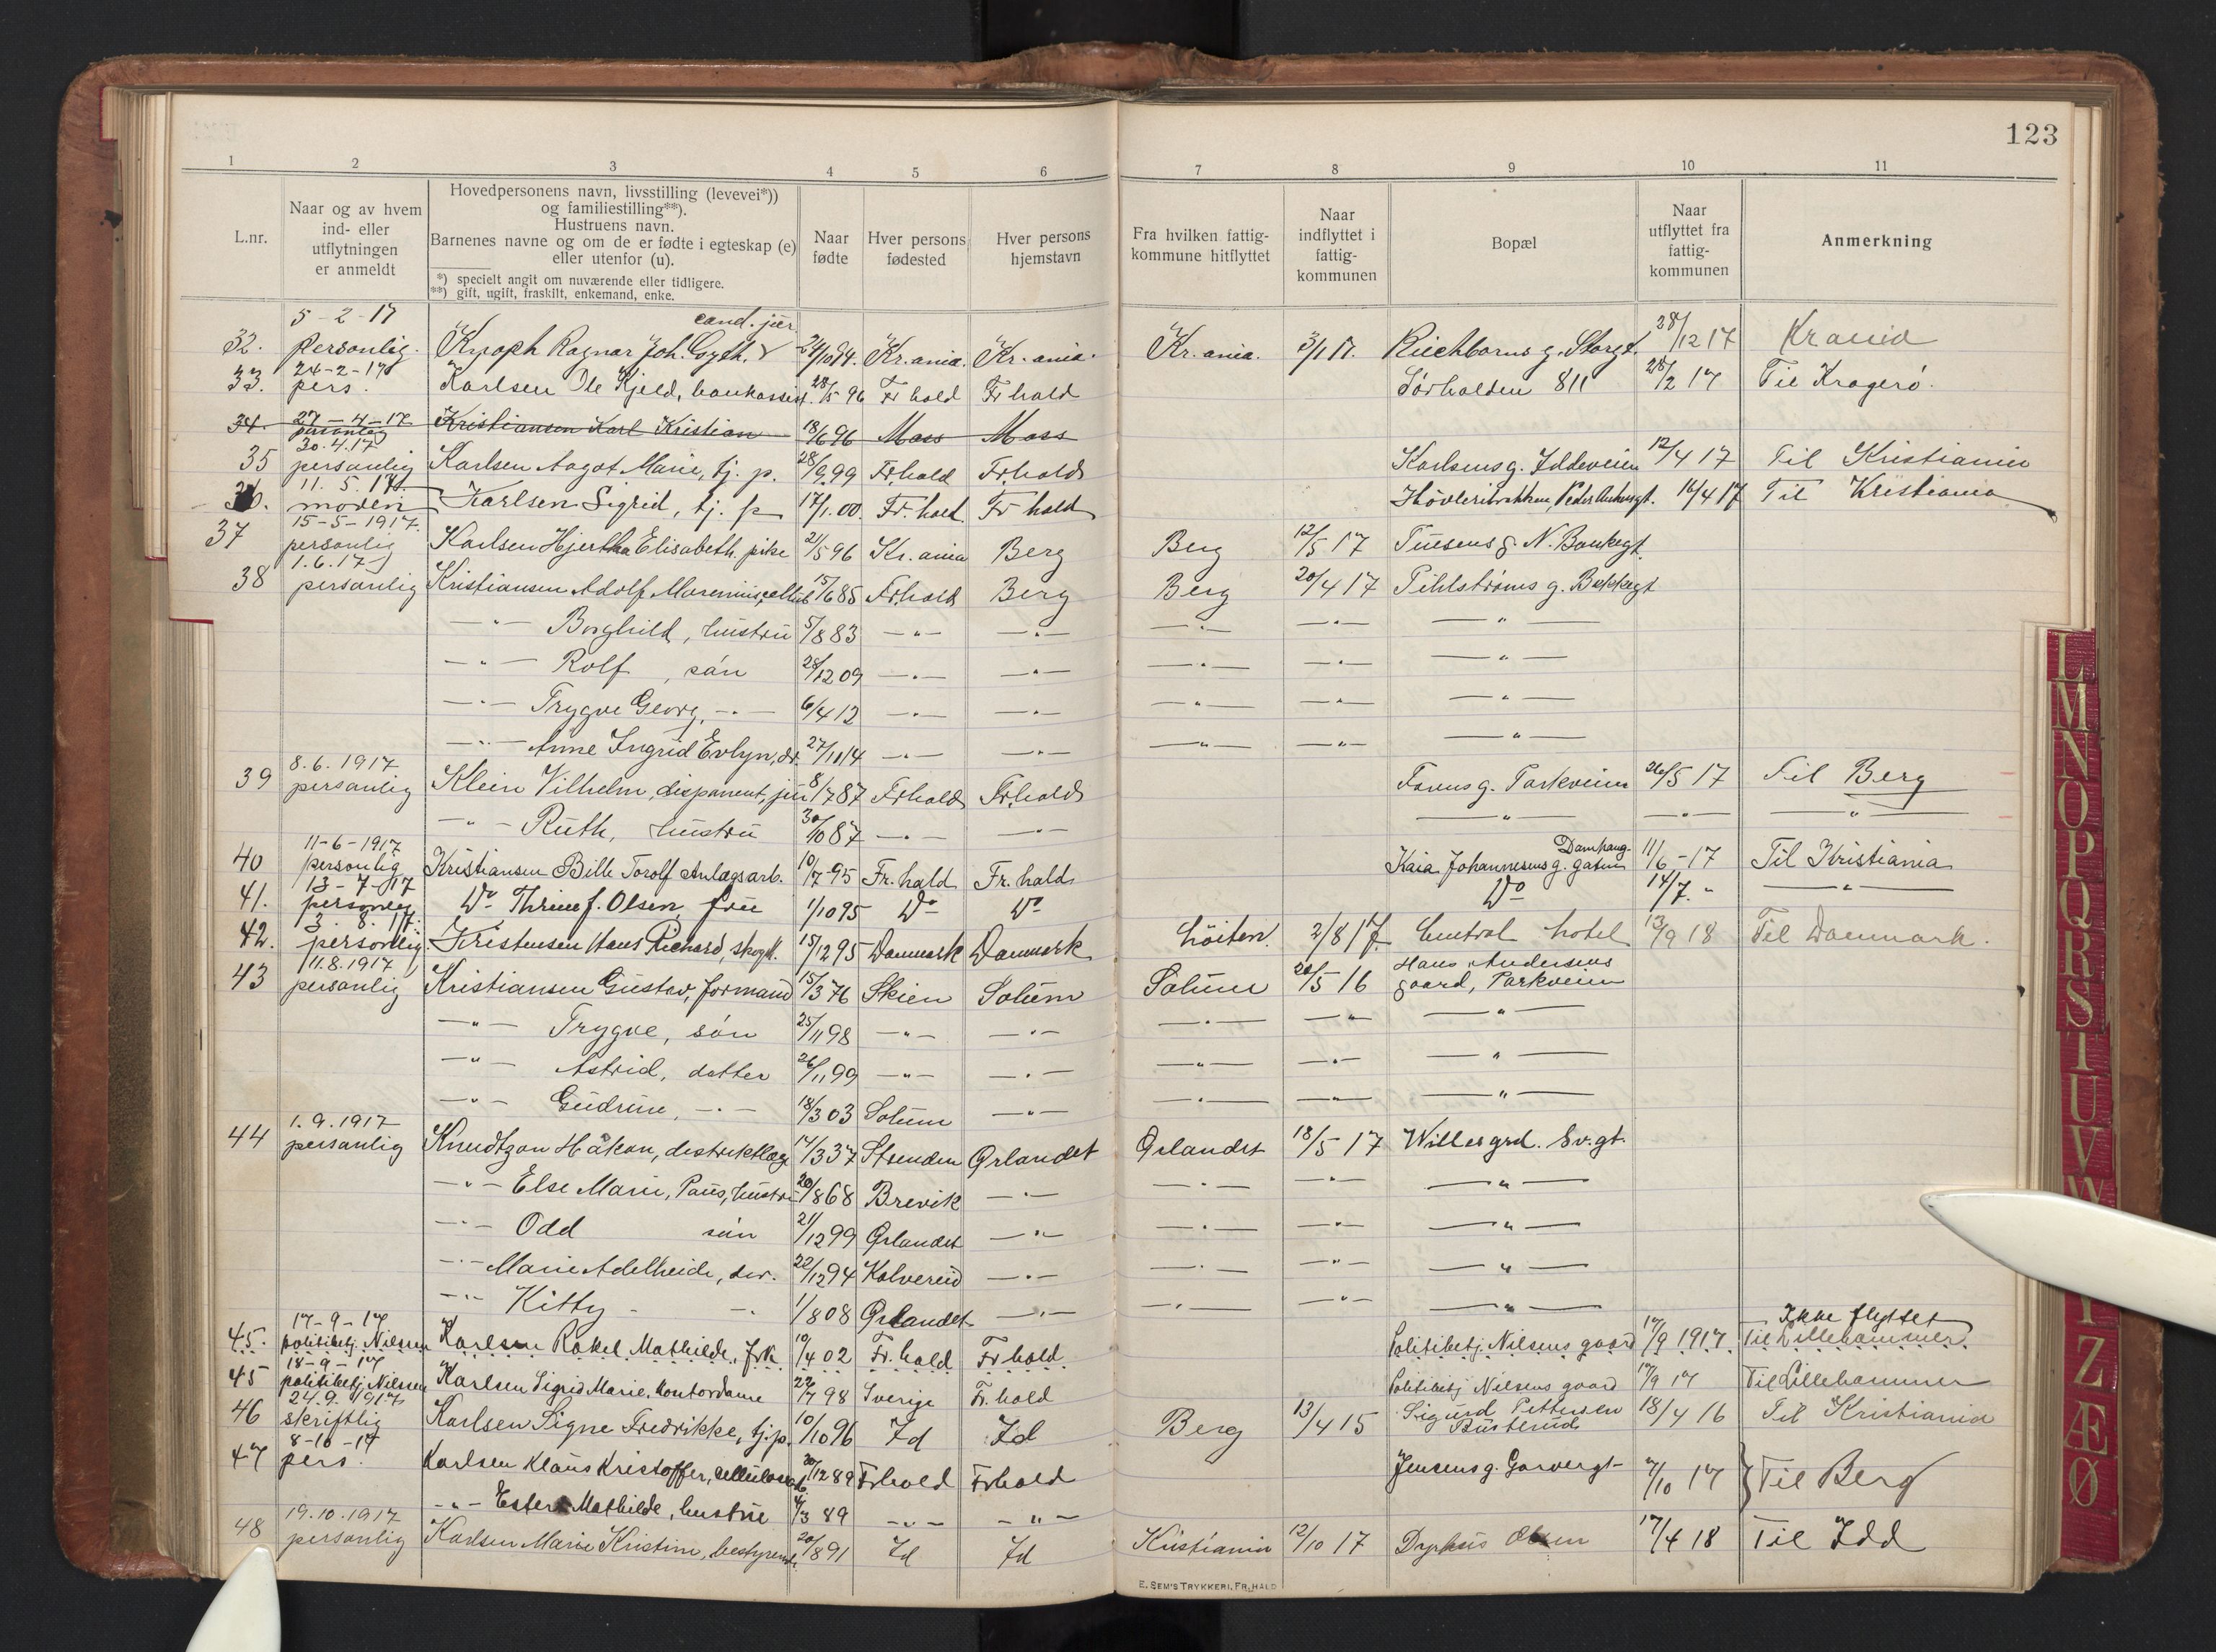 123
1 2 3 4 5 6 7 8 9 10 11
L.nr.
Naar og av hvem
ind- eller
utflytningen
er anmeldt
Hovedpersonens navn, livsstilling (levevei*))
og familiestilling**).
Hustruens navn.
Barnenes navne og om de er fødte i egteskap (e)
eller utenfor (u).
*) specielt angit om nuværende eller tidligere.
**) gift, ugift, fraskilt, enkemand, enke.
Naar
fødte
Hver persons
fødested
Hver persons
hjemstavn
Fra hvilken fattig-
kommune hitflyttet
Naar
indflyttet i
fattig-
kommunen
Bopæl
Naar
utflyttet fra
fattig-
kommunen
Anmerkning
5-2-17 cand. jur.
32. Personlig. Knoph Ragnar Joh. Gyth. 24/10 94. Kr.ania. Kr.ania. Kr.ania. 3/1 17. g. Storgt. 28/12 17 Krania
24-2-17
33. pers. Karlsen Ole Kjeld, bankassist. 28/5 96 Fr hald Fr hald Sørhalden 811 28/2 17 Til Kragerø.
27-4-17
34. personlig Kristiansen Karl Kristian 18/6 96 Moss Moss
30.4.17
35 personlig Karlsen Aagot Marie, tj. p. 28/9 99 Fr.hald Fr.hald Karlsens g. Iddeveien 12/4 17 Til Kristiania
11.5.17.
36. moden Karlsen Sigrid, tj. p 17/1 00. Fr. hald. Fr hald 16/4 17 Til Kristiania
15-5-1917.
37 personlig Karlsen Hjertha Elisabeth. pike 21/5 96 Kr.ania Berg Berg 12/5 17 g. N. Bankegt.
1.6.17
38 personlig Kristiansen Adolf Marenius, cellul 15/6 85 Fr.hald Berg Berg 20/4 17 Pihlstrøms g. Bakkegt
—"— Borghild, hustru 5/8 83 —"— —"— —"— —"— —"—
—"— Rolf, søn 28/12 09 —"— —"— —"— —"— —"—
—"— Trygve Georg, —"— 6/4 12 —"— —"— —"— —"— —"—
—"— Anne Ingrid Evlyn, dr. 27/11 14 —"— —"— —"— —"— —"—
8.6.1917
39 personlig Klein Vilhelm, disponent, jun 8/7 87 Fr.hald Fr.hald g. Parkveien 26/5 17 Til Berg
—"— Ruth, hustru 30/10 87 —"— —"— —"— —"— —"—
11-6-1917 Damhaug-
40 personlig Kristiansen Bille Torolf Anlægsarb. 10/7 95 Fr. hald Fr. hald Kaia Johannesens g. gaten 11/6-17 Til Kristiania
13-7-17
41. personlig Do Thrine f. Olsen, frue 1/10 95 Do Do Do 14/7. " —"—
3.8.17.
42. personlig Kristensen Hans Richard, 15/12 95 Danmark Danmark Løiten. 2/8 17 Central hotel 13/9 18 Til Danmark.
11.8.1917 Hans Andersens
43 personlig Kristiansen Gustav, formand 15/3 76 Skien Solum Solum 20/5 16 gaard, Parkveien
—"— Trygve, søn 25/11 98 —"— —"— —"— —"— —"—
—"— Astrid, datter 26/11 99 —"— —"— —"— —"— —"—
—"— Gudrun, —"— 18/3 03 Solum —"— —"— —"— —"—
1.9.1917
44 personlig Knudtzon Håkon, distriktlæge 14/3 37 Strinden Ørlandet Ørlandet 18/5 17 Willesgrd. Sv.gt.
—"— Else Marie, Paus, hustru 20/8 68 Brevik —"— —"— —"— —"—
—"— Odd søn 21/12 99 Ørlandet —"— —"— —"— —"—
—"— Marie Adelheide, dtr. 22/12 94 Kolvereid —"— —"— —"— —"—
—"— Kitty —"— 1/8 08 Ørlandet —"— —"— —"— —"—
17-9-17 Ikke flyttet
45. politibetj. Nilsen Karlsen Rakel Mathilde, frk. 10/4 02 Fr. hald Fr hald. Politibetj. Nilsens gaard 17/9 1917. Til Lillehammer.
18-9-17
45 politibetj Nilsen Karlsen Sigrid Marie, kontordame 22/7 98 Sverige Fr. hald Politibetj Nilsens gaard 17/9 17 Til Lillehammer
24.9.1917
46 skriftlig Karlsen Signe Fredrikke, tj.p. 10/10 96 Id Id Berg 13/4 15 Sigurd Pettersen 18/4 16 Til Kristiania
Busterud
8-10-17
47 pers. Karlsen Klaus Kristoffer, cellulosearb. 20/12 89 Frhald Frhald Jensens g. Garvergt- 7/10 17 } Til Berg
—"— Ester Mathilde, hustru 4/3 89 —"— —"—
19.10.1917
48 personlig Karlsen Marie Kristine, bestyrerinde. 20/8 91 Id Id Kristiania 12/10 17 Olsen 17/4 18 Til Idd
E. SEM'S TRYKKERI, FR.HALD
L
M
N
O
P
Q
R
S
T
U
V
W
Y
Z
Æ
Ø